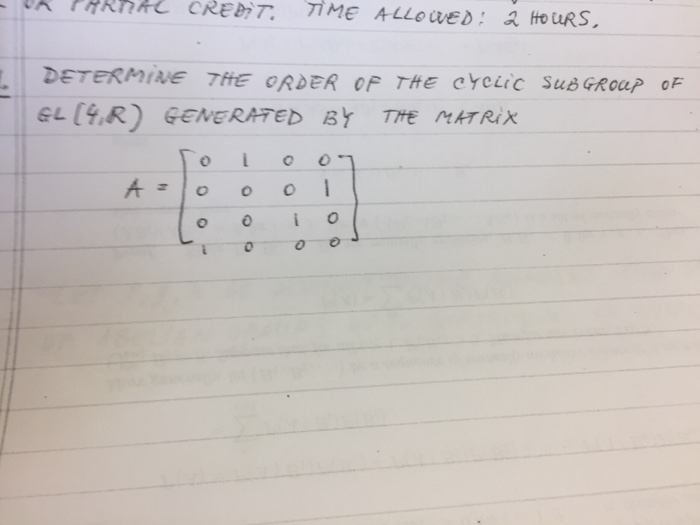 OR PARTIAL CREDIT. TIME ALLOWED: 2 HOURS.
1. DETERMINE THE ORDER OF THE CYCLIC SUBGROUP OF
GL(4,R) GENERATED BY THE MATRIX
0 1 0 0
A = 0 0 0 1
0 0 1 0
1 0 0 0